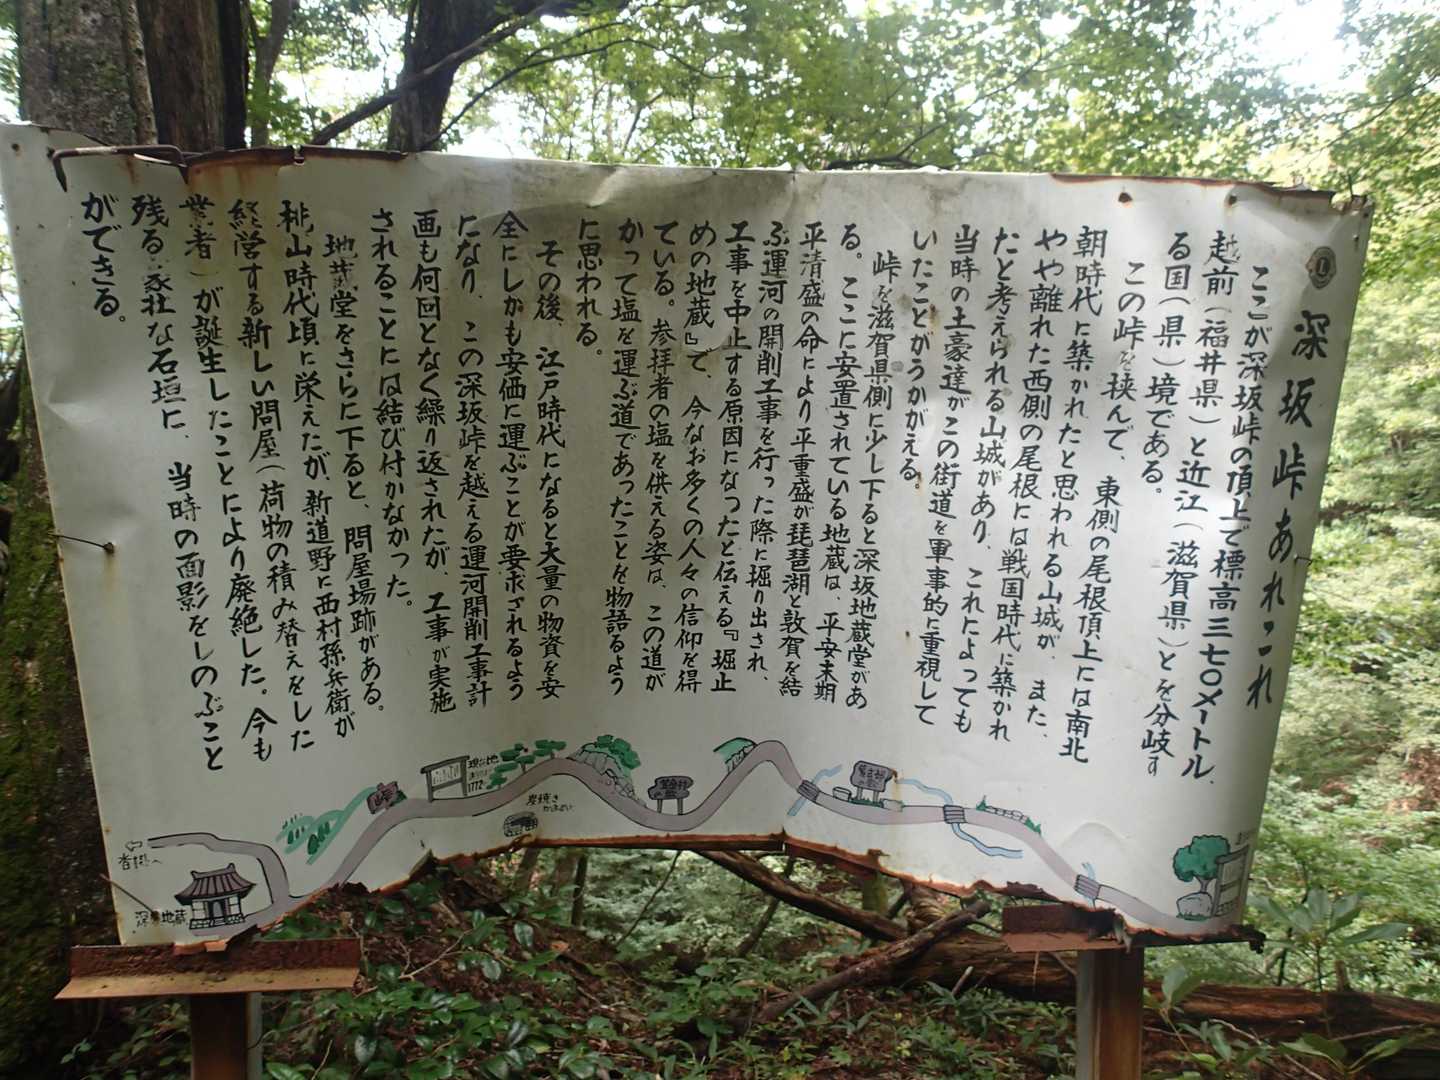 深坂峠あれこれ
ここが深坂峠の頂上で標高三七〇メートル、
越前（福井県）と近江（滋賀県）とを分岐す
る国（県）境である。
この峠を挟んで、東側の尾根頂上には南北
朝時代に築かれたと思われる山城が、また、
やや離れた西側の尾根には戦国時代に築かれ
たと考えられる山城があり、これによっても
当時の土豪達がこの街道を軍事的に重視して
いたことがうかがえる。
峠を滋賀県側に少し下ると深坂地蔵堂があ
る。ここに安置されている地蔵は、平安末期
平清盛の命により平重盛が琵琶湖と敦賀を結
ぶ運河の開削工事を行った際に掘り出され、
工事を中止する原因になったと伝える『堀止
めの地蔵』で、今なお多くの人々の信仰を得
ている。参拝者の塩を供える姿は、この道が
かって塩を運ぶ道であったことを物語るよう
に思われる。
その後、江戸時代になると大量の物資を安
全にしかも安価に運ぶことが要求されるよう
になり、この深坂峠を越える運河開削工事計
画も何回となく繰り返されたが、工事が実施
されることには結び付かなかった。
地蔵堂をさらに下ると、問屋場跡がある。
桃山時代頃に栄えたが、新道野に西村孫兵衛が
経営する新しい問屋（荷物の積み替えをした
業者）が誕生したことにより廃絶した。今も
残る豪壮な石垣に、当時の面影をしのぶこと
ができる。
現在地
1772
炭焼き
深坂地蔵